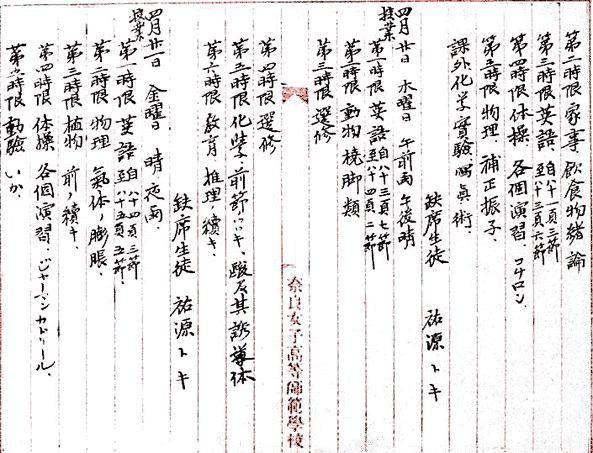 第二時限 家事 飲食物緒論
第三時限 英語 自八十一頁三節 至八十三頁六節
第四時限 体操 各個演習、コチロン、
第五時限 物理、補正振子、
課外化学實驗 寫眞術、
缺席生徒 祐源トキ
四月廿日 水曜日 午前雨 午後晴
授業
第一時限 英語 自八十三頁七節 至八十四頁二節
第二時限 動物 橈脚類
第三時限 選修
奈良女子高等師範學校
第四時限 選修
第五時限 化學、前節ノツヾキ、酸及其誘導体
第六時限 教育 推理ノ續キ、
缺席生徒 祐源トキ
四月廿二日 金曜日 晴 夜雨、
授業
第一時限 英語 自八十四頁三節 至八十五頁五節、
第二時限 物理 氣体ノ膨脹、
第三時限 植物 前ノ續キ
第四時限 体操 各個演習、ジャーマンカドリール、
第五時限 動物 いか、